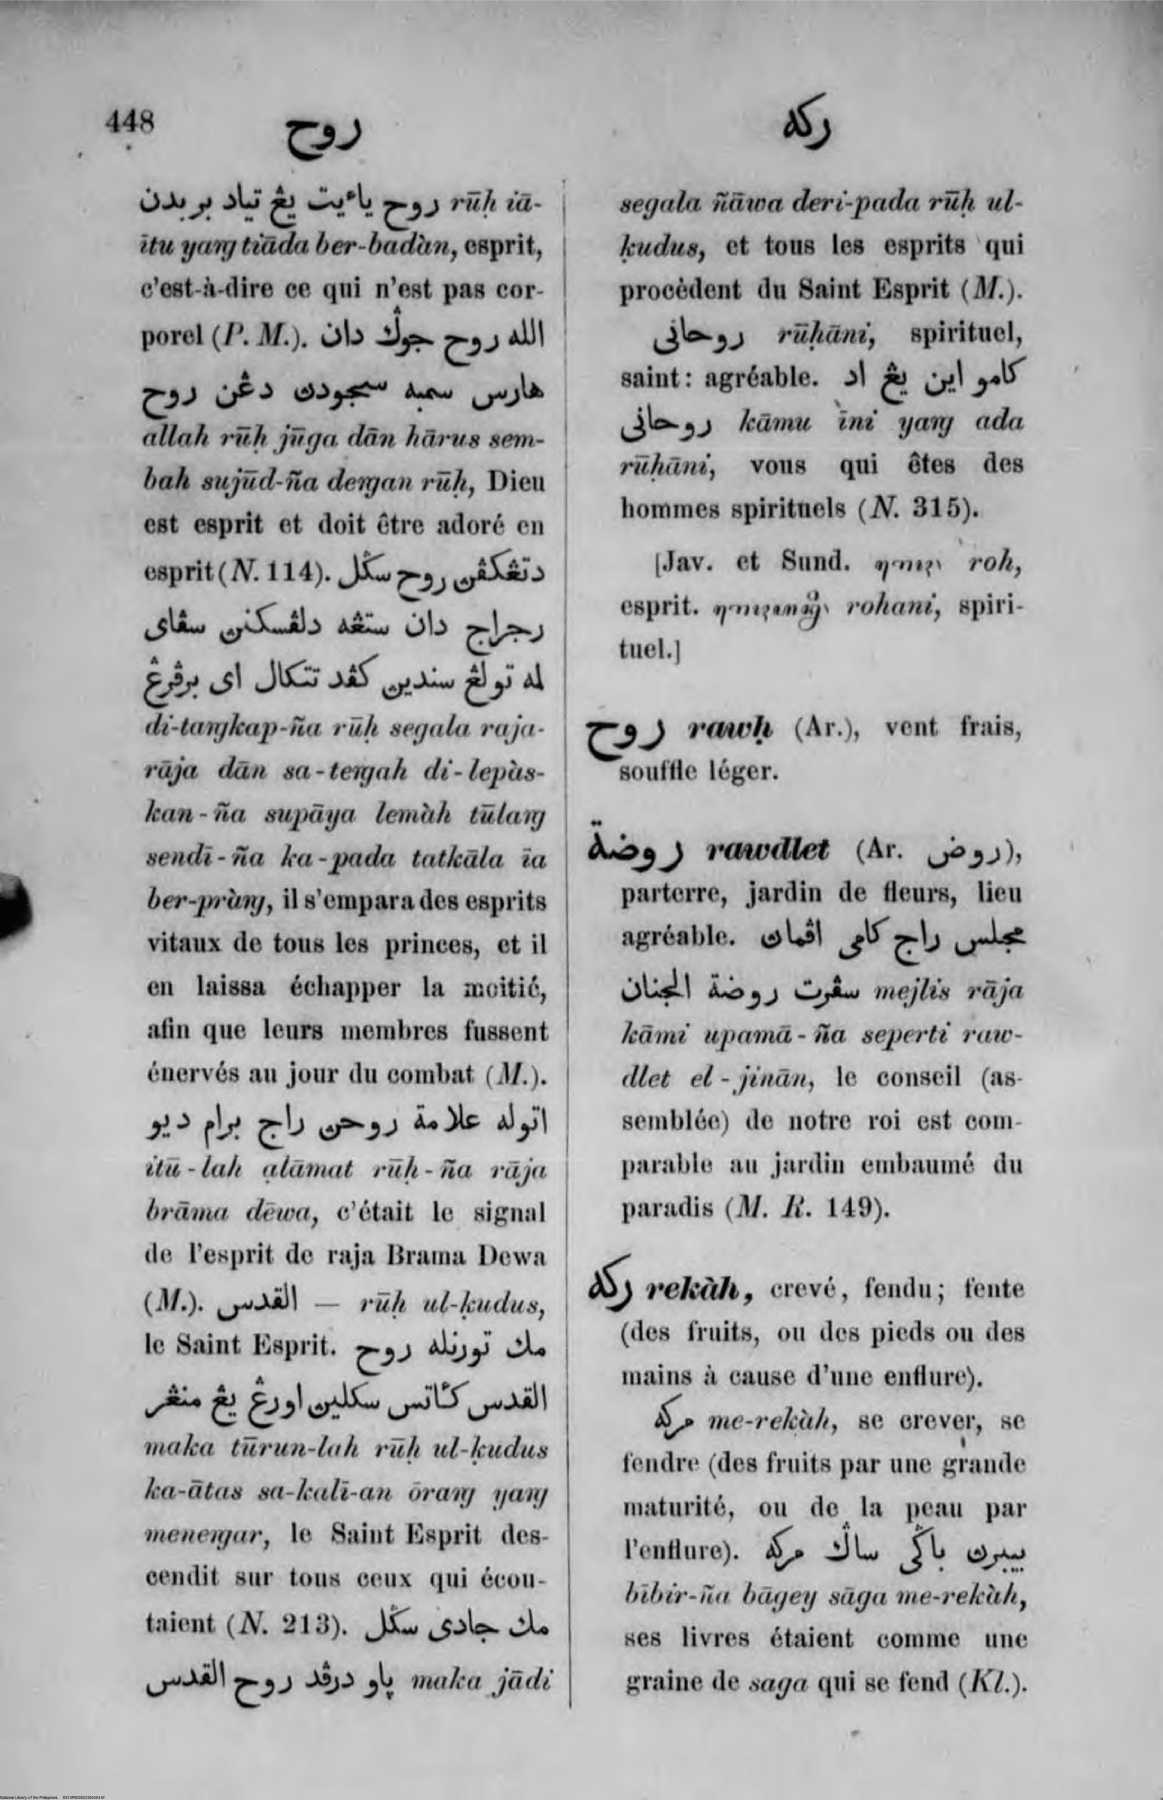 448
روح
ركه
روح ياءيت يڠ تياد بربدن rūḥ iā-
ītu yaŋ tiàda ber-badàn, esprit,
c'est-à-dire ce qui n'est pas cor-
porel (P. M.). الله روح جوݢ دان
هارس سمبه سجودڽ دڠن روح
allah rūḥ jūga dān hārus sem-
bah sujūd-ña deŋan rūḥ, Dieu
est esprit et doit être adoré en
esprit (N. 114). دتڠكڤڽ روح سݢل
رجراج دان ستڠه دلڤسكنڽ سڤاي
لمه تولڠ سندين كڤد تتكال اي برڤرڠ
di-taŋkap-ña rūḥ segala raja-
rāja dān sa-teŋah di-lepàs-
kan-ña supāya lemàh tūlaŋ
sendī-ña ka-pada tatkāla īa
ber-pràŋ, il s'empara des esprits
vitaux de tous les princes, et il
en laissa échapper la moitié,
afin que leurs membres fussent
énervés au jour du combat (M.).
اتوله علامة روحڽ راج برام ديو
itū-lah ạlāmat rūḥ-ña rāja
brāma dēwa, c'était le signal
de l'esprit de raja Brama Dewa
(M.). القدس — rūḥ ul-ḳudus,
le Saint Esprit. مك تورنله روح
القدس كأتس سكلين اورڠ يڠ منڠر
maka tūrun-lah rūḥ ul-ḳudus
ka-ātas sa-kalī-an ōraŋ yaŋ
meneŋar, le Saint Esprit des-
cendit sur tous ceux qui écou-
taient (N. 213). مك جادي سݢل
ڽاو درڤد روح القدس maka jādi
segala ñāwa deri-pada rūḥ ul-
ḳudus, et tous les esprits qui
procèdent du Saint Esprit (M.).
روحاني rūḥāni, spirituel,
saint: agréable. كامو اين يڠ اد
روحاني kāmu īni yaŋ ada
rūḥāni, vous qui êtes des
hommes spirituels (N. 315).
[Jav. et Sund. roh,
esprit. rohani, spiri-
tuel.]
روح rawḥ (Ar.), vent frais,
souffle léger.
روضة rawdlet (Ar. روض),
parterre, jardin de fleurs, lieu
agréable. مجلس راج كامي اڤماڽ
سڤرت روضة الجنان mejlis rāja
kāmi upamā-ña seperti raw-
dlet el-jinān, le conseil (as-
semblée) de notre roi est com-
parable au jardin embaumé du
paradis (M. R. 149).
ركه rekàh, crevé, fendu; fente
(des fruits, ou des pieds ou des
mains à cause d'une enflure).
مركه me-rekàh, se crever, se
fendre (des fruits par une grande
maturité, ou de la peau par
l'enflure). بيبرڽ باݢي ساݢ مركه
bībir-ña bāgey sāga me-rekàh,
ses livres étaient comme une
graine de saga qui se fend (Kl.).